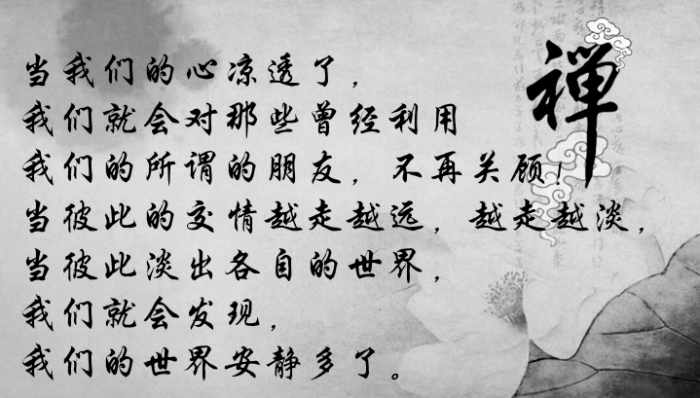 当我们的心凉透了，
我们就会对那些曾经利用
我们的所谓的朋友，不再关顾！
当彼此的交情越走越远，越走越淡，
当彼此淡出各自的世界，
我们就会发现，
我们的世界安静多了。
禅